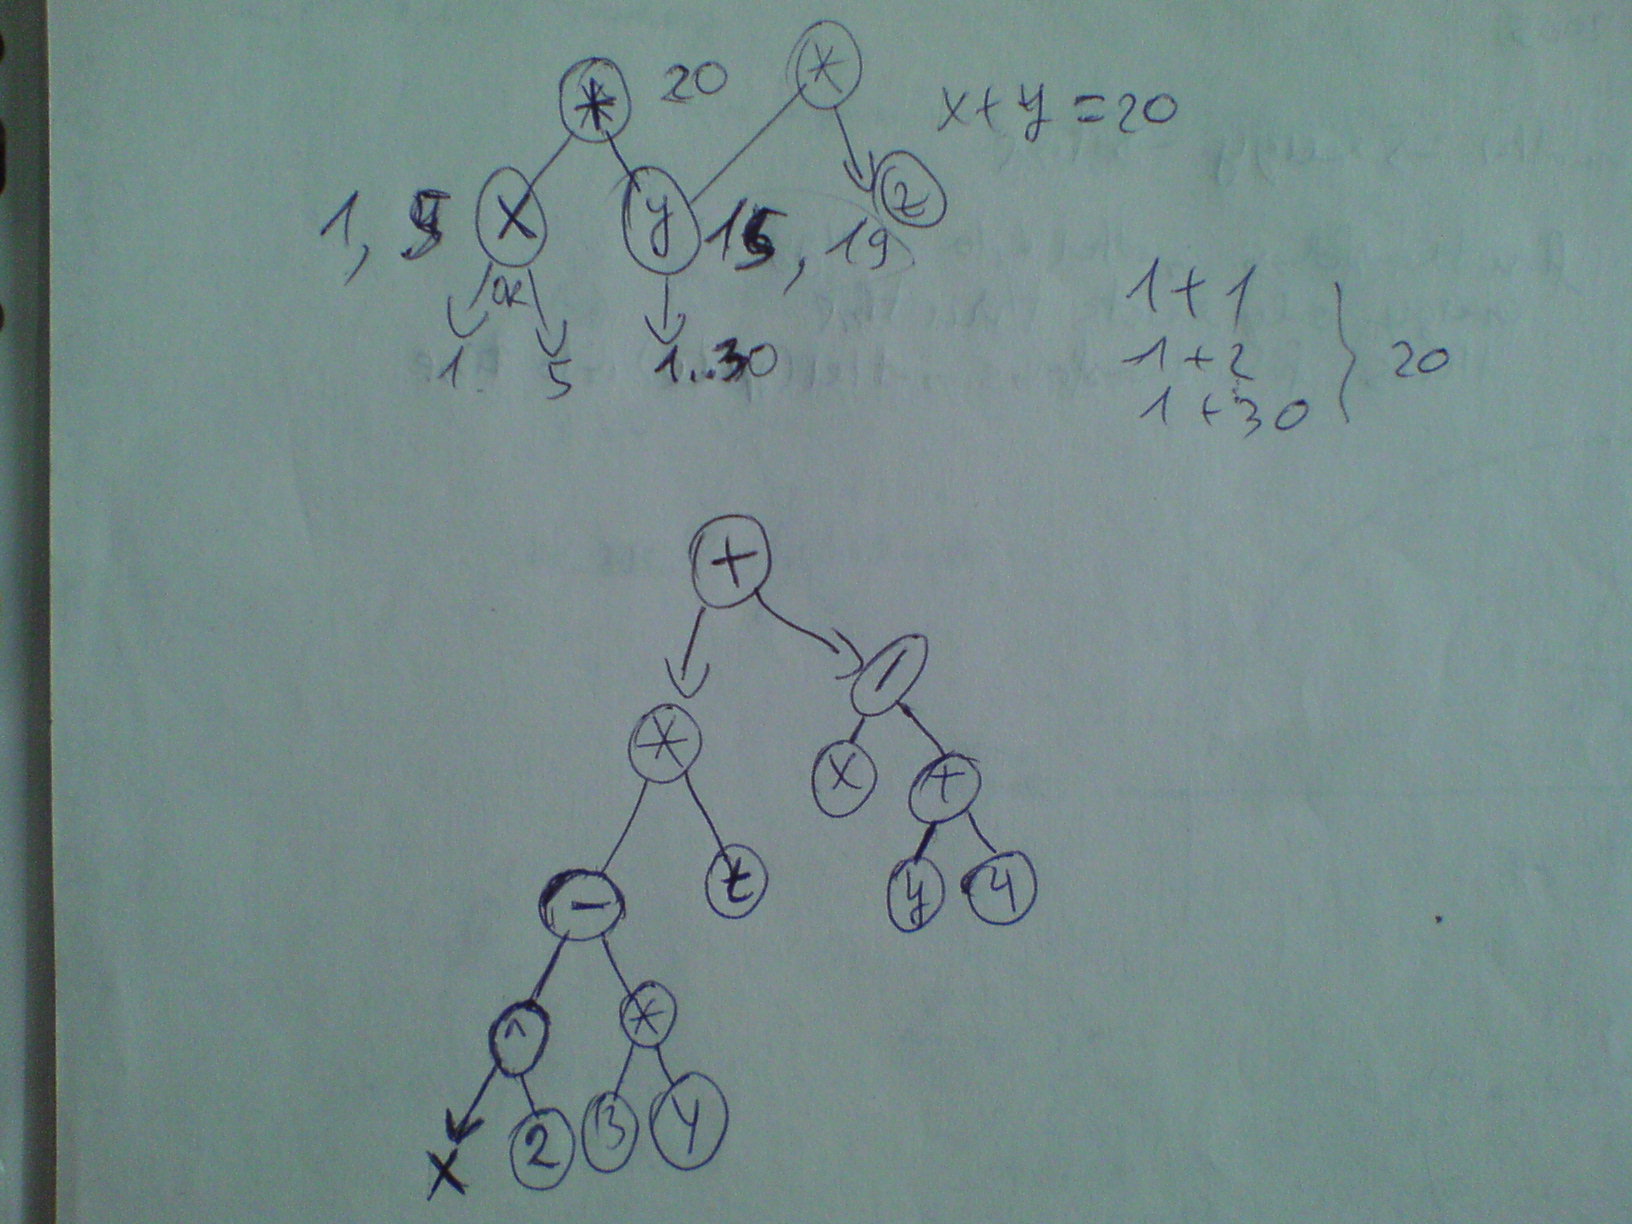 * 20 * x + y = 20
1, 5 x y 15, 19 z
OR
1 5 1..30
1 + 1
1 + 2 } 20
1 + 30
+
* /
x +
- t y 4
^ *
x 2 3 y